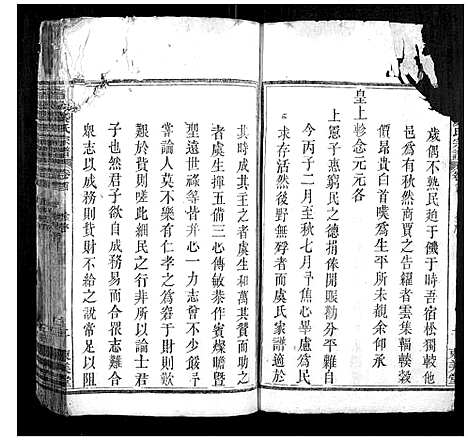 歲偶不熟民迫于饑于時吾宿松獨較他
邑為有秋然商賈之告糴者雲集輻輳穀
價昂貴白首嘆為生平所未觀余仰承
皇上軫念元元各
上憲子惠窮民之德捐俸開賑勸分平糶自
今丙子二月至秋七月焦心畢慮凡
求存活然後野無殍者而虞氏家譜適於
其時成其主之者虞生和萬其贊而助之
者虞生揮五倘三心傳敏恭作賓燦瞻暨
聖遠世祿等皆并心一力志會不少餒
論論人莫不樂有仁孝之為窘于財則歎
艱於貲則嗟此細民之行非所以論士君
子也然君子欲自成務易而合眾志難合
眾志以成務則貲財不給之說常足以阻